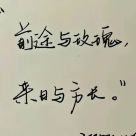 “前途与玫瑰,
来日与方长。”